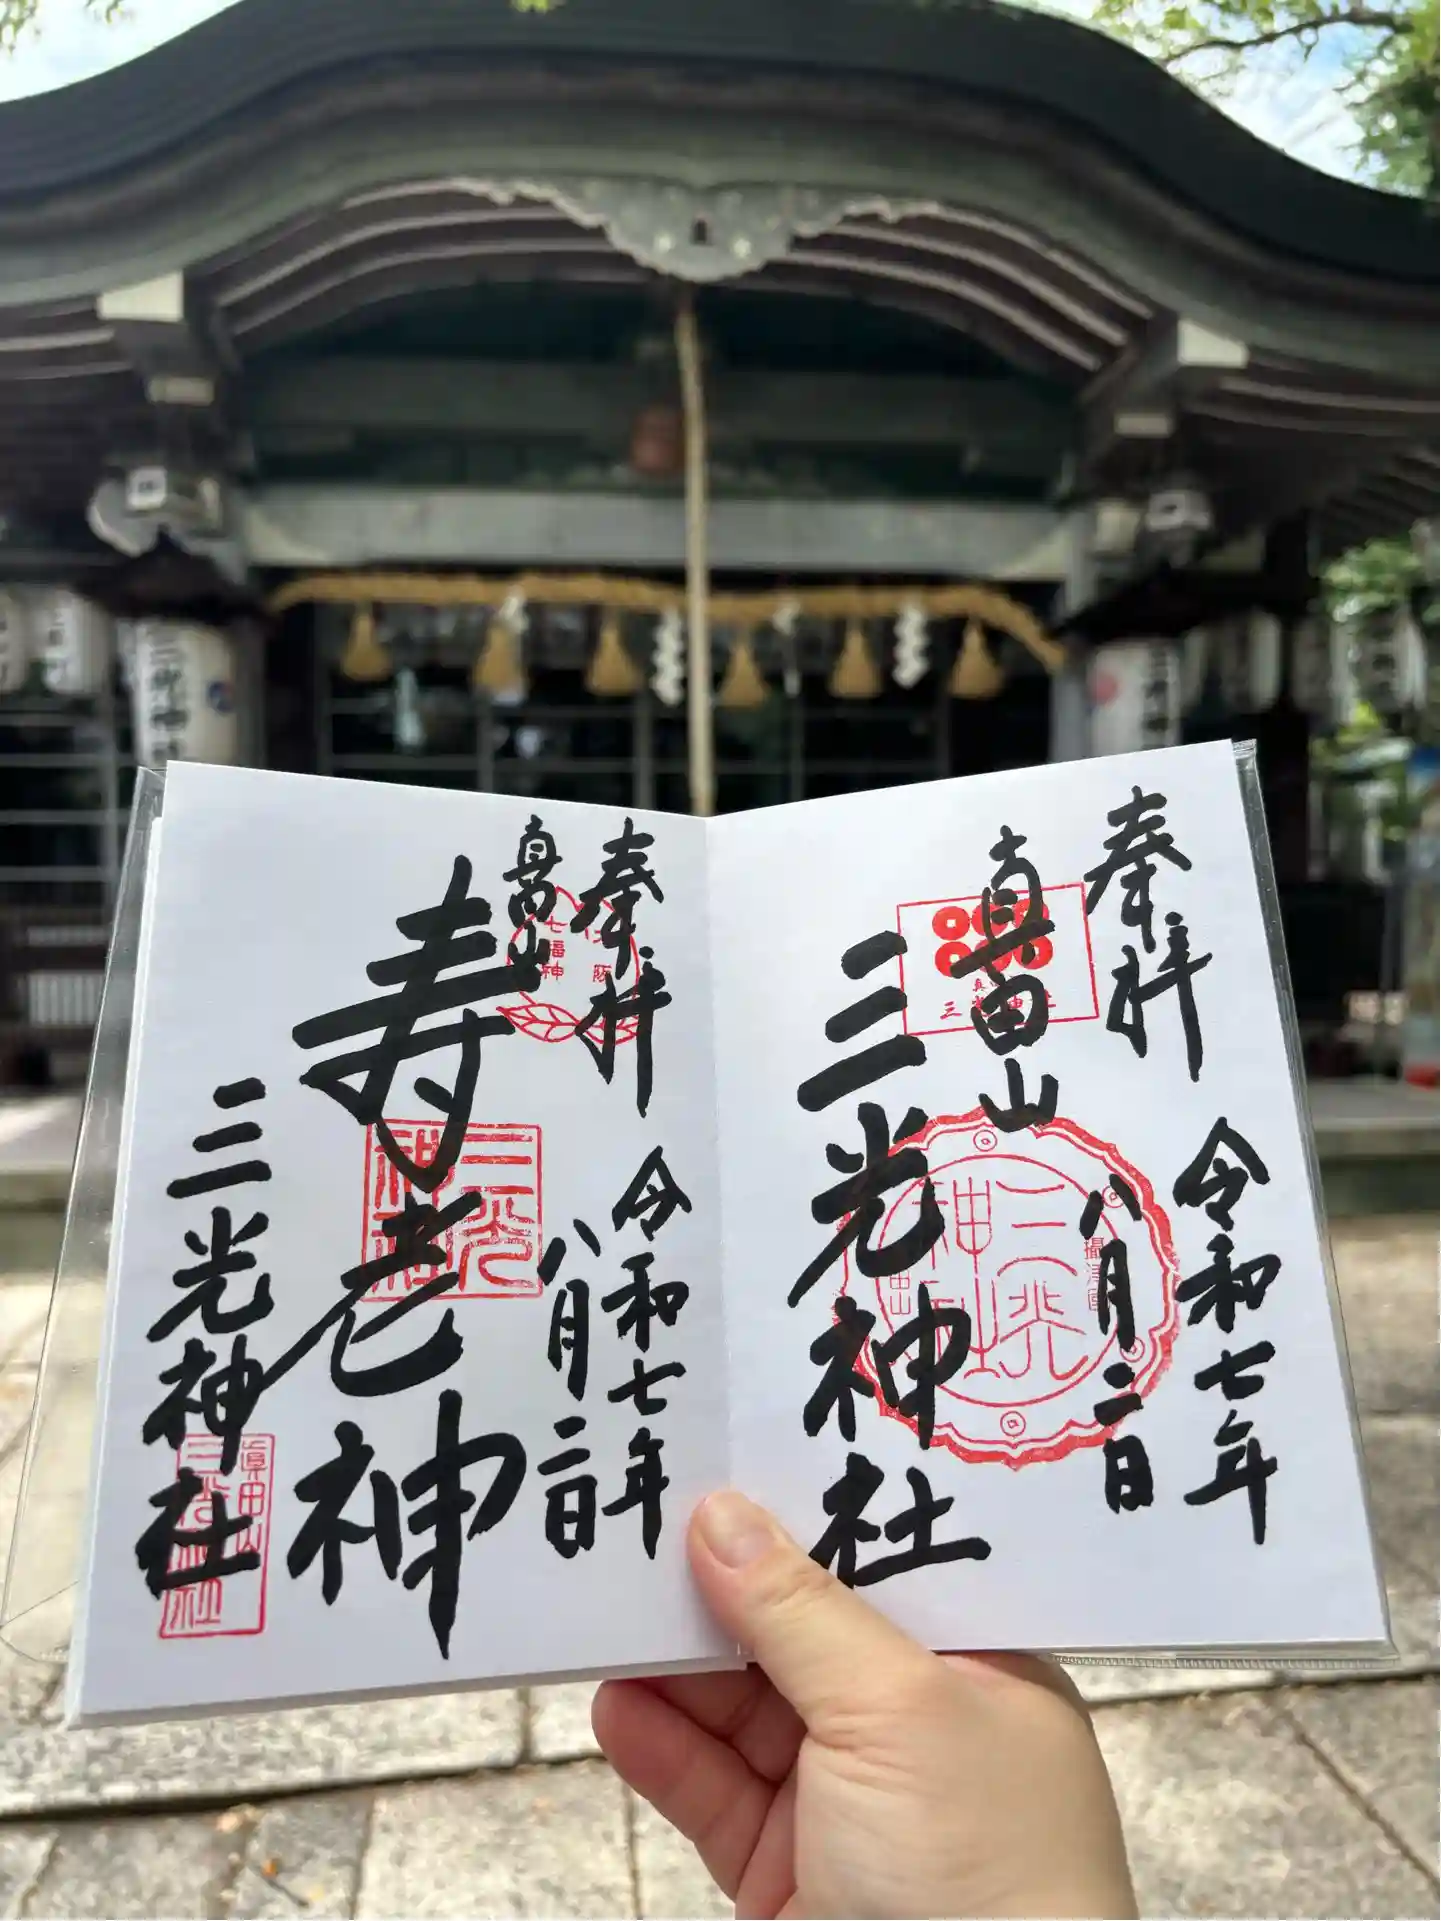 奉拝
真田山
三光神社
令和七年
八月二日
三光神社
奉拝
真田山
寿老神
三光神社
令和七年
八月二日
七福神
大阪
三光神社
眞田山
三光神社
三光神社